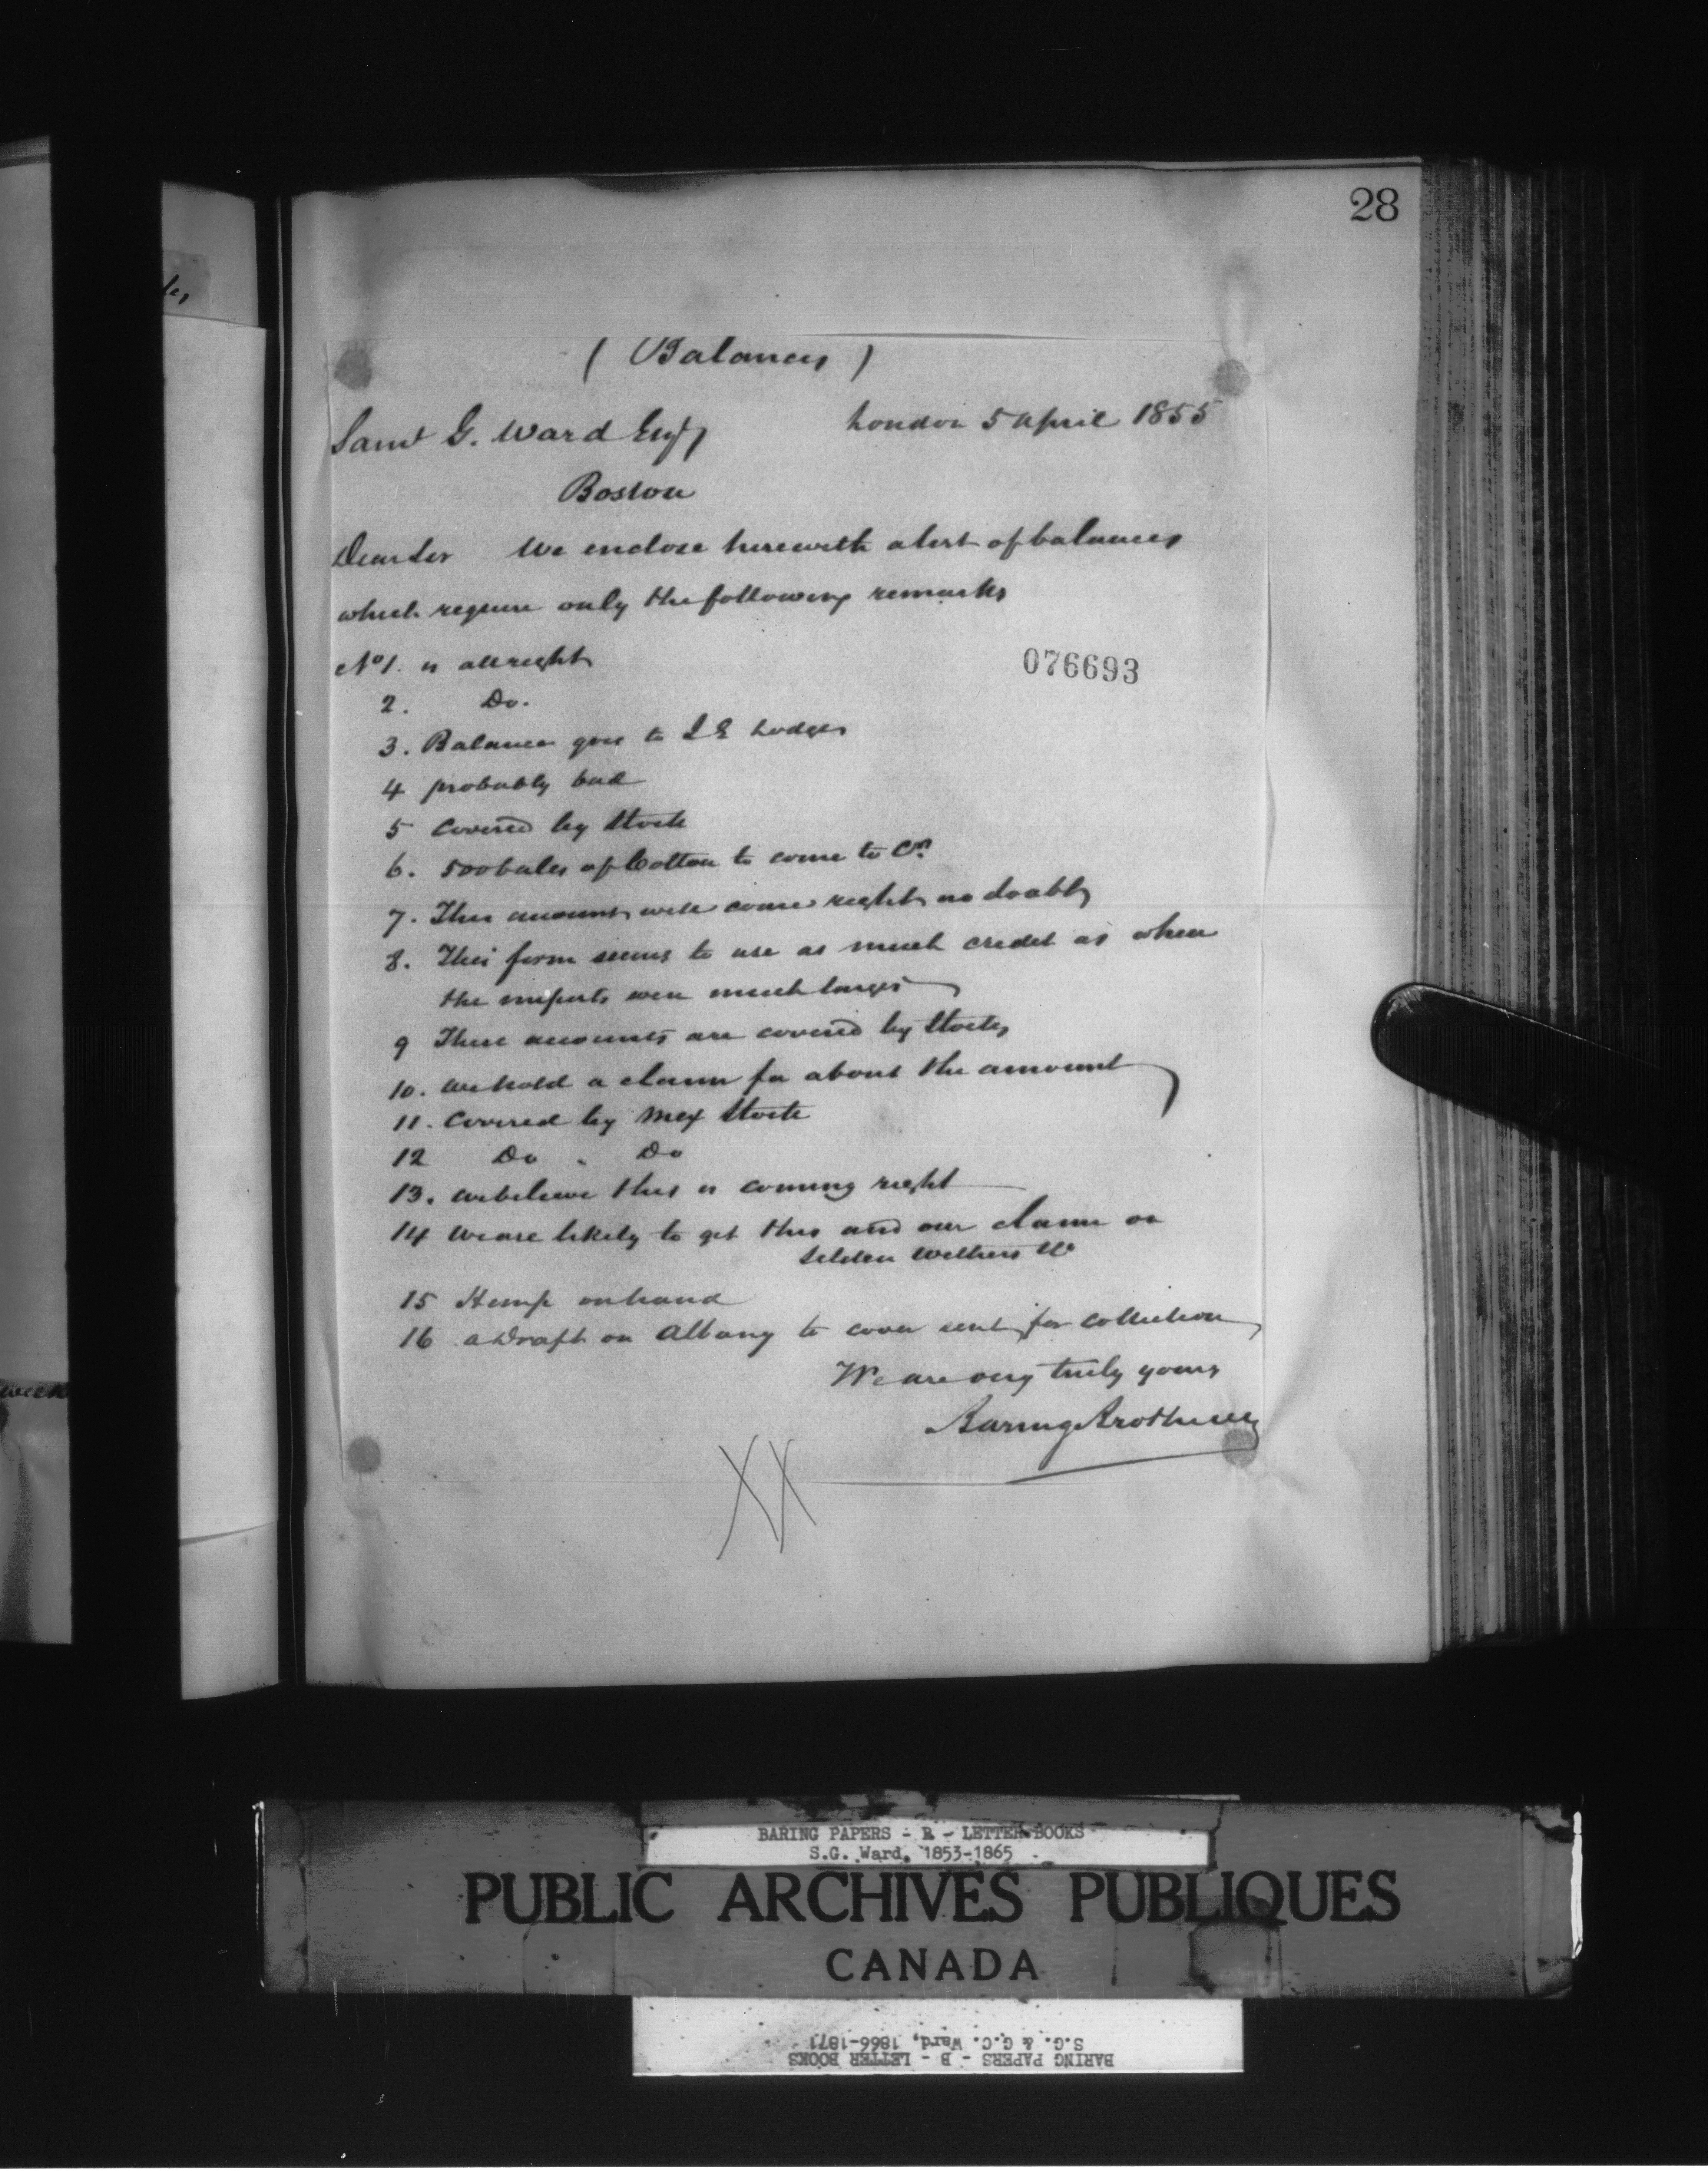 28
( Balances )
London 5 April 1855
Saml G. Ward Esq
Boston
Dear Sir We enclose herewith a list of balances
which require only the following remarks
No 1. is all right
076693
2. Do.
3. Balance goes to Lodges
4 probably bad
5 Covered by Stock
6. 500 bales of Cotton to come to Cr.
7. This amount will come right no doubt
8. This firm seems to use as much credit as when
the imports were much larger
9 These accounts are covered by Stocks
10. We hold a claim for about the amount
11. Covered by Mex Stock
12 Do " Do
13. We believe this is coming right
14 We are likely to get this and our claim on
Selden Withers &c
15 Hemp on hand
16 a Draft on Albany to cover sent for collection
We are very truly yours
Baring Brothers
XX
week
BARING PAPERS - B - LETTER BOOKS
S.G. Ward, 1853-1865
PUBLIC ARCHIVES PUBLIQUES
CANADA
BARING PAPERS - B - LETTER BOOKS
S.G. & G.C. Ward, 1866-1871